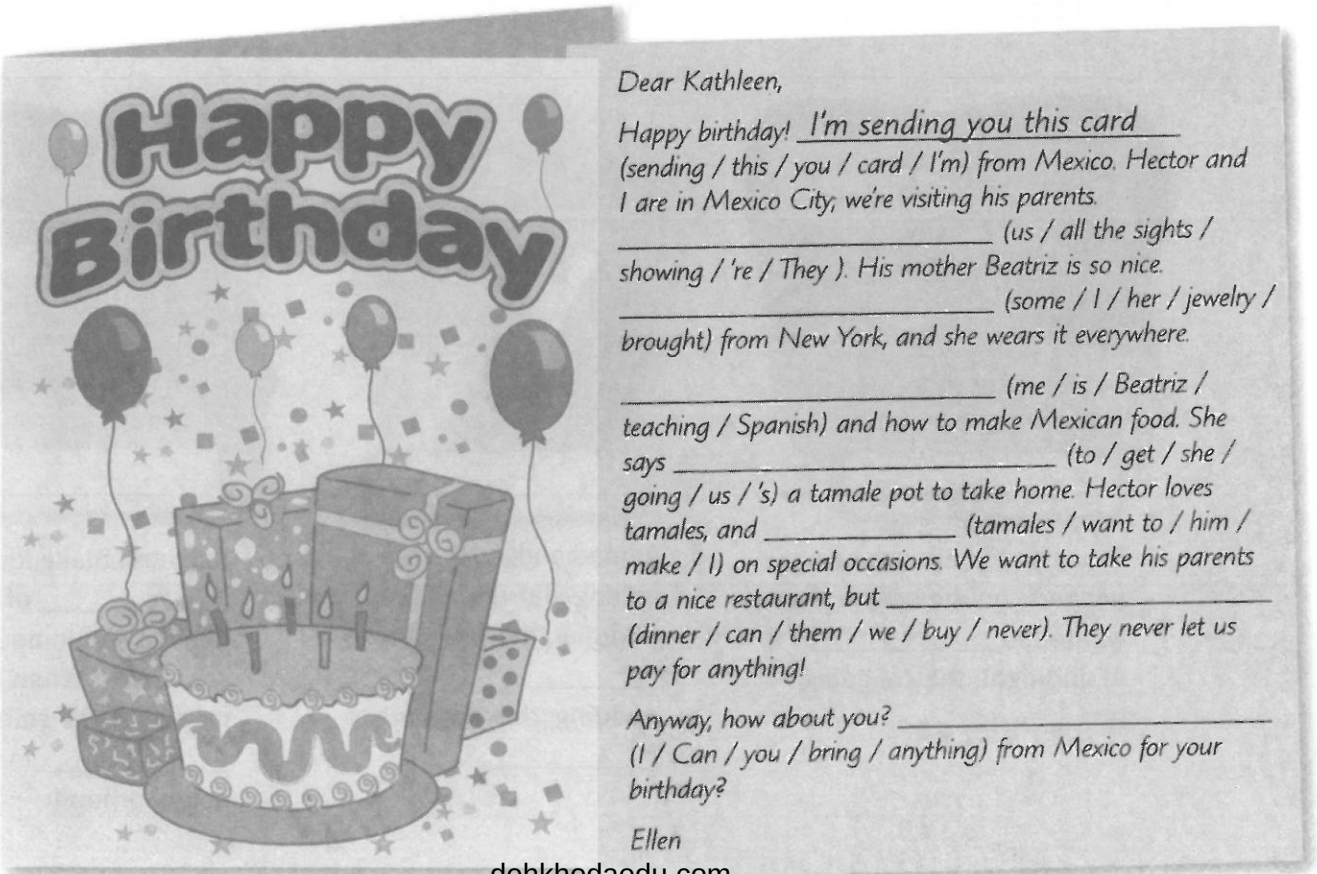 Happy
Birthday
Dear Kathleen,
Happy birthday! I'm sending you this card
(sending / this / you / card / I'm) from Mexico. Hector and
I are in Mexico City; we're visiting his parents.
______________________________ (us / all the sights /
showing / 're / They ). His mother Beatriz is so nice.
______________________________ (some / I / her / jewelry /
brought) from New York, and she wears it everywhere.
______________________________ (me / is / Beatriz /
teaching / Spanish) and how to make Mexican food. She
says ______________________________ (to / get / she /
going / us / 's) a tamale pot to take home. Hector loves
tamales, and _______________ (tamales / want to / him /
make / I) on special occasions. We want to take his parents
to a nice restaurant, but ______________________________
(dinner / can / them / we / buy / never). They never let us
pay for anything!
Anyway, how about you? ______________________________
(I / Can / you / bring / anything) from Mexico for your
birthday?
Ellen
dehkhodaedu.com